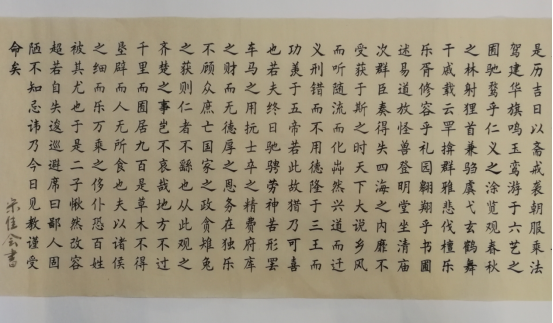 是历吉日以斋戒袭朝服乘法
驾建华旗鸣玉鸾游于六艺之
囿驰骛乎仁义之涂览观春秋
之林射狸首兼驺虞弋玄鹤舞
干戚载云罕揜群雅悲伐檀乐
乐胥修容乎礼园翱翔乎书圃
述易道放怪兽登明堂坐清庙
次群臣奏得失四海之内靡不
受获于斯之时天下大说乡风
而听随流而化芔然兴道而迁
义刑错而不用德隆于三王而
功羡于五帝若此故猎乃可喜
也若夫终日驰骋劳神苦形罢
车马之用抏士卒之精费府库
之财而无德厚之恩务在独乐
不顾众庶亡国家之政贪雉兔
之获则仁者不繇也从此观之
齐楚之事岂不哀哉地方不过
千里而囿居九百是草木不得
垦辟而人无所食也夫以诸侯
之细而乐万乘之侈仆恐百姓
被其尤也于是二子愀然改容
超若自失逡巡避席曰鄙人固
陋不知忌讳乃今日见教谨受
命矣
宋佳会书